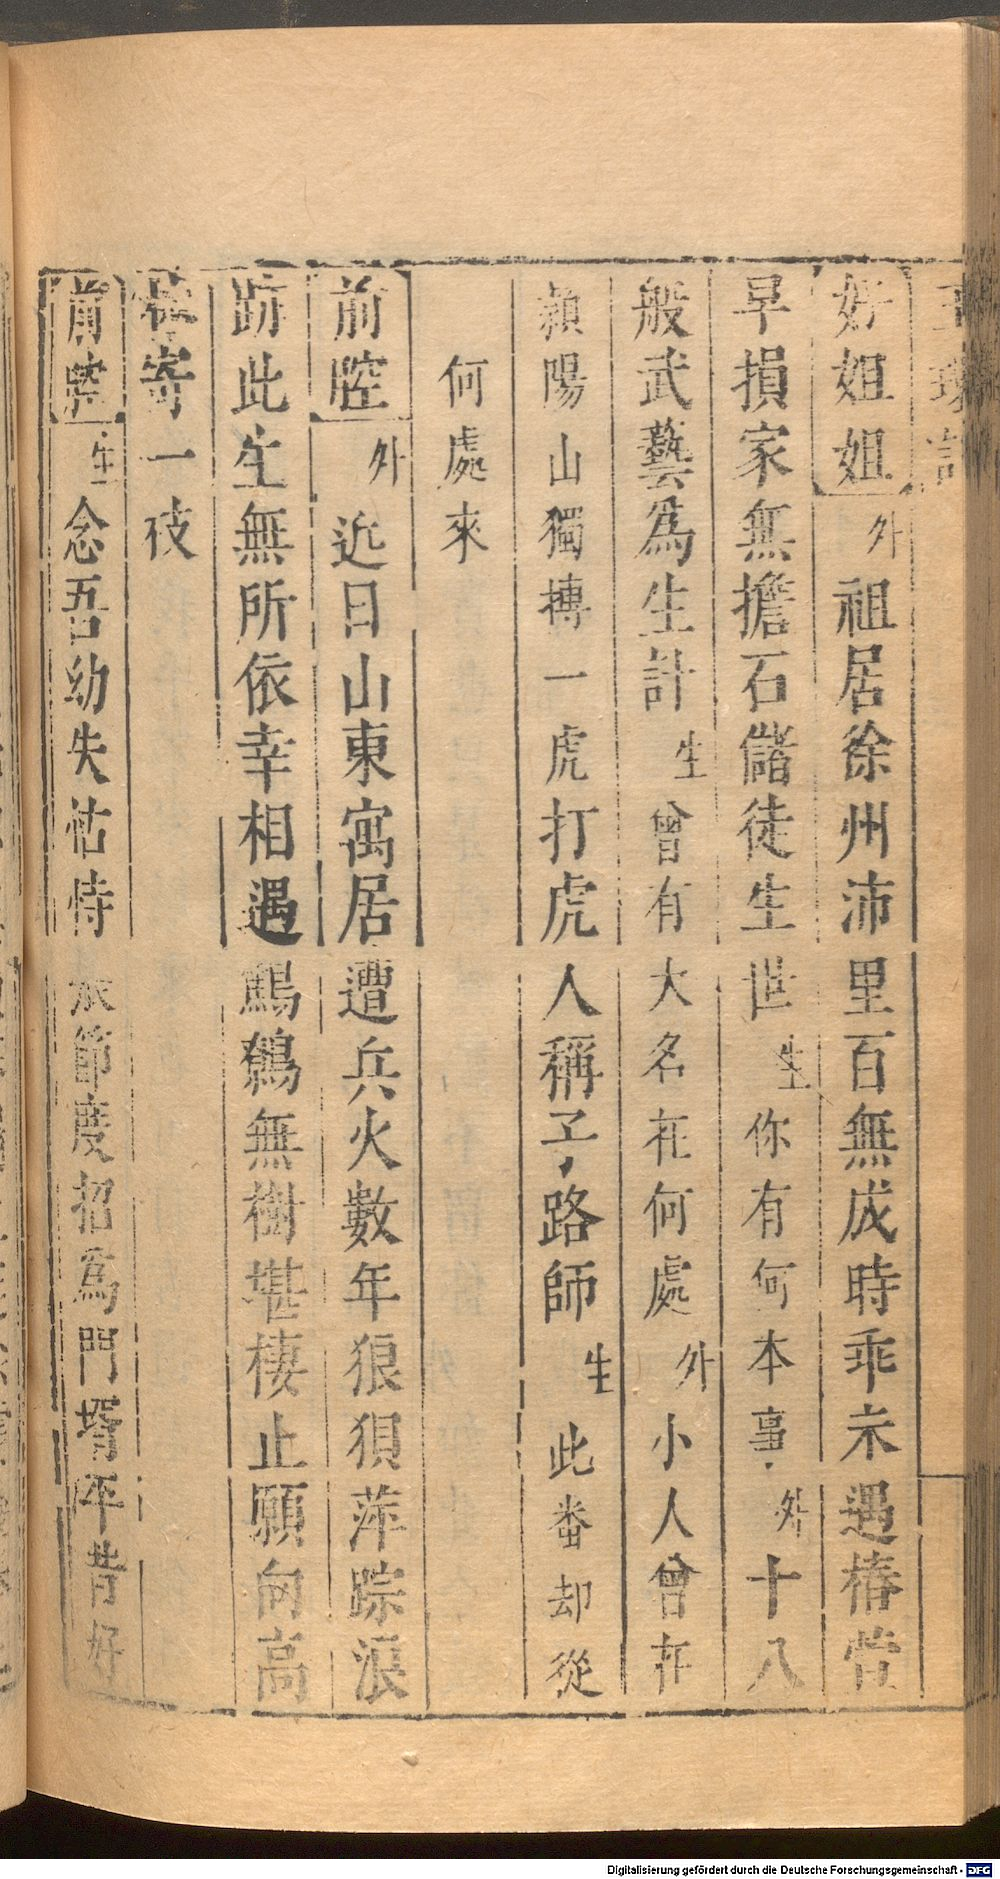 好姐姐外祖居徐州沛里百無成時乖未遇椿萱
早損家無擔石儲徒生世生你有何本事外十八
般武藝為生計生曾有大名在何處外小人曾在
潁陽山獨摶一虎打虎人稱子路師生此番却從
何處來
前腔外近日山東寓居遭兵火數年狼狽萍踪浪
跡此生無所依幸相遇鷦鷯無樹堪棲止願向高
枝寄一枝
前腔生念吾幼失怙恃 節度招為門壻平昔好
Digitalisierung gefördert durch die Deutsche Forschungsgemeinschaft - DFG